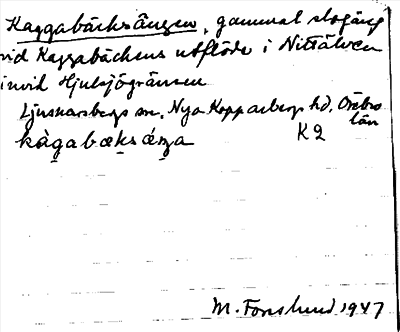 Kaggabäcksängen, gammal slogäng
vid Kaggabäckens utflöde i Nittälven
invid Hjulsjögränsen
Ljusnarsbergs sn, Nya Kopparbergs hd, Örebro
län
kàgabæksæŋa K2
M. Forslund 1947